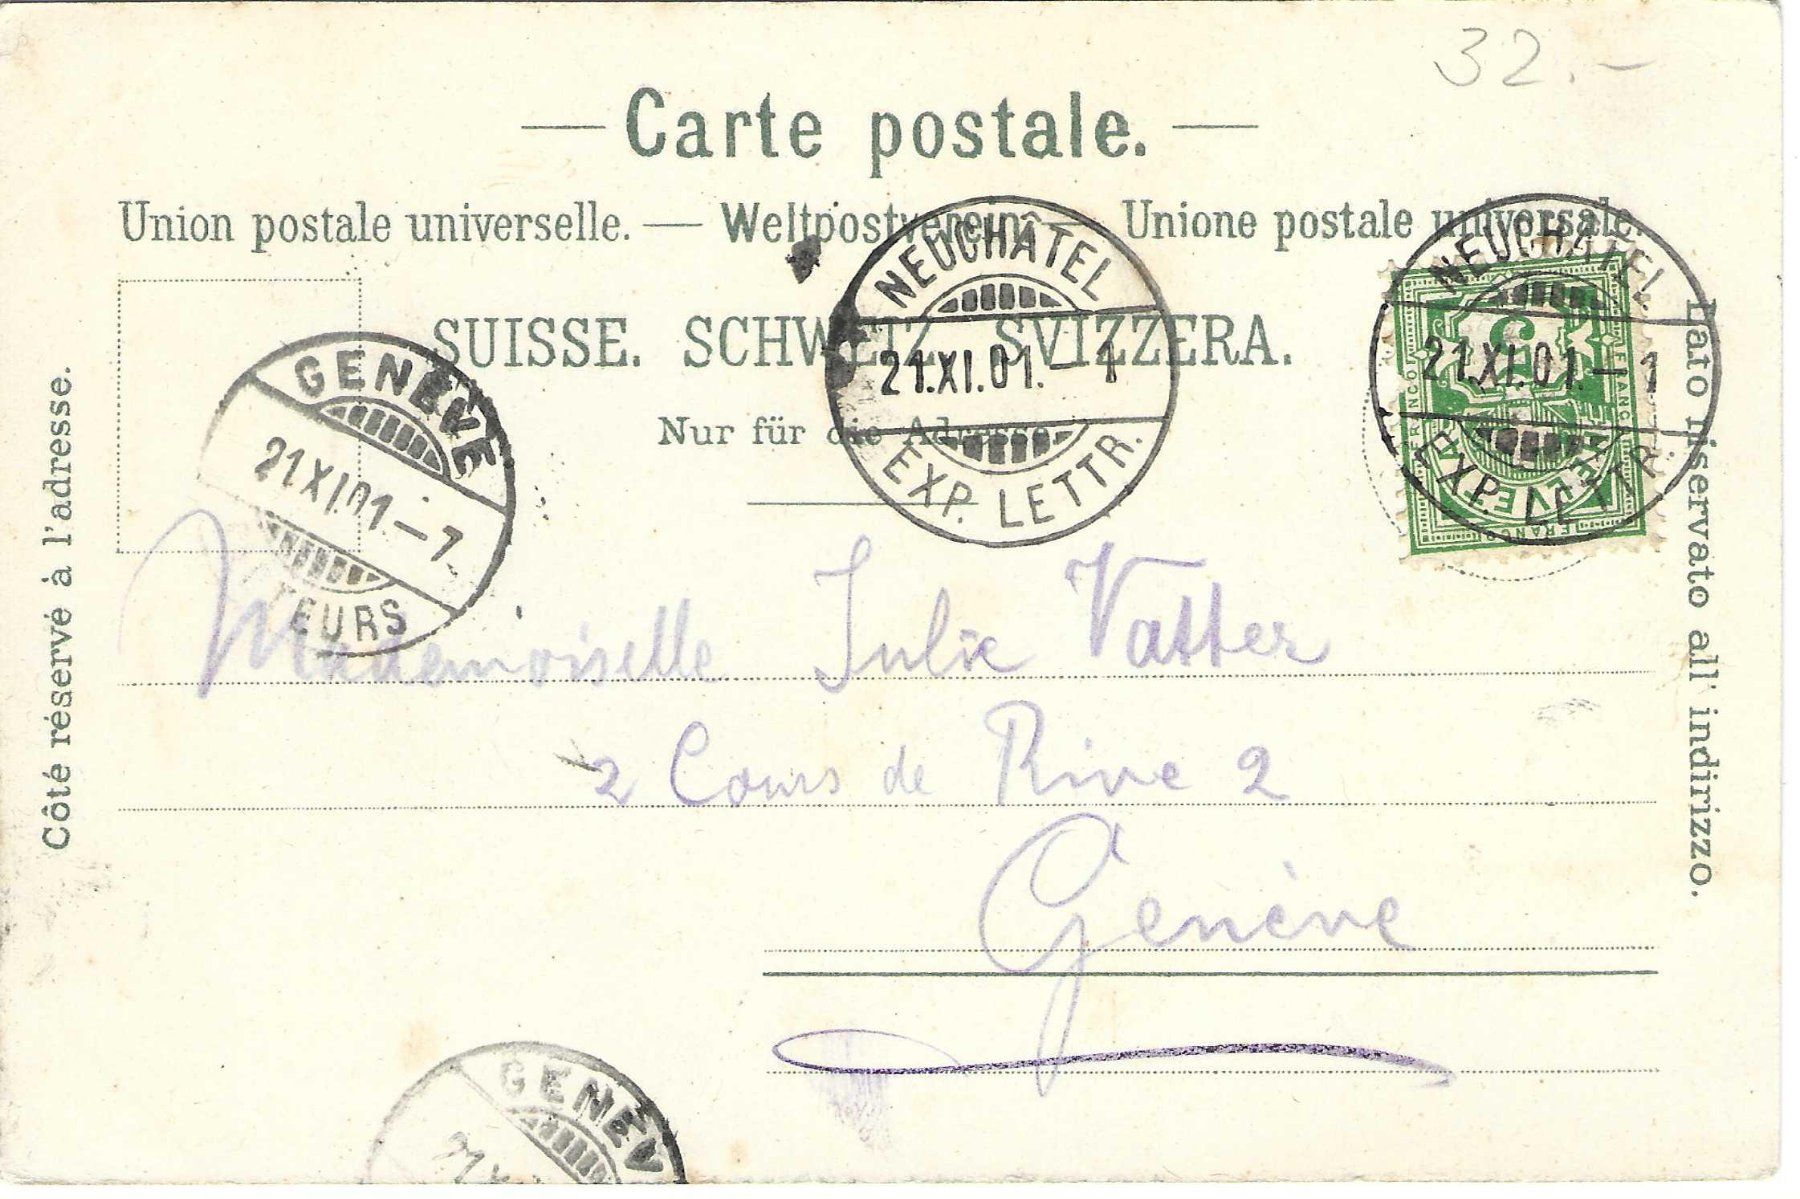 32.-
— Carte postale. —
Union postale universelle. — Weltpostverein — Unione postale universale.
SUISSE. SCHWEIZ. SVIZZERA.
Nur für die Adresse.
Côté réservé à l'adresse.
Lato riservato all' indirizzo.
NEUCHÂTEL
21.XI.01.-1
EXP. LETTR.
NEUCHÂTEL
21.XI.01.-1
EXP. LETTR.
FRANCO
5
HELVETIA
GENÈVE
21 XI.01-7
TEURS
Mademoiselle Julie Vatter
2 Cours de Rive 2
Genève
GENÈV
21.X